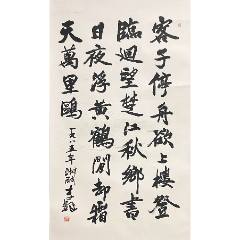 客子停舟欲上樓登
臨迴望楚江秋鄉書
日夜浮黃鶴閒却霜
天萬里鷗
一九八五年